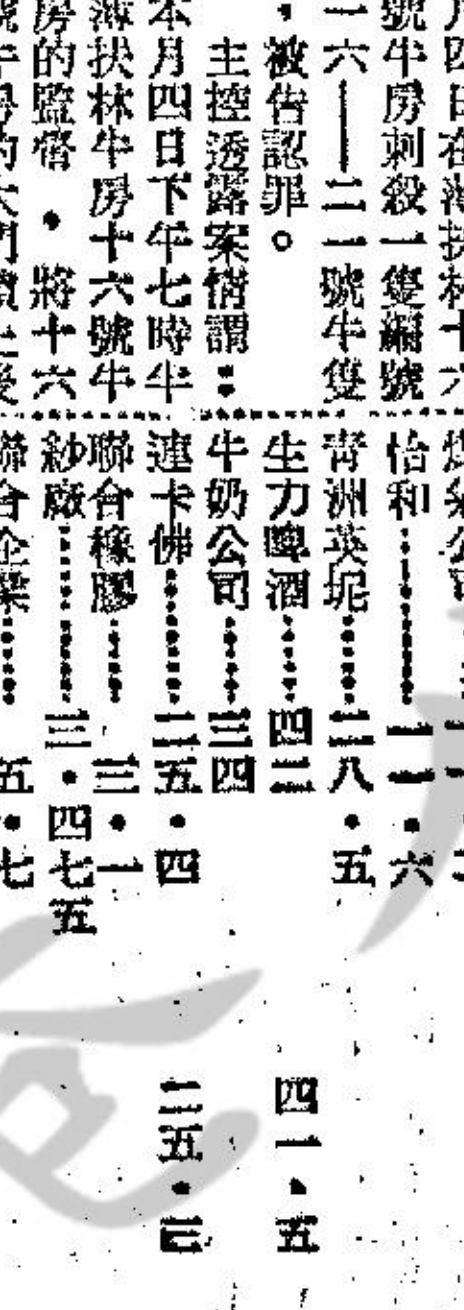 月四日在薄扶林十六
號牛房刺殺一隻編號
一六——二一號牛隻
，被告認罪。
主控透露案情謂：
本月四日下午七時半
薄扶林牛房十六號牛
房的監督，將十六
怡和……一一・六
青洲英坭……二八・五
生力啤酒……四二 四一・五
牛奶公司……三四
連卡佛……二五・四 二五・二
聯合橡膠……三・一
紗廠……三・四七五
聯合企業……五・七